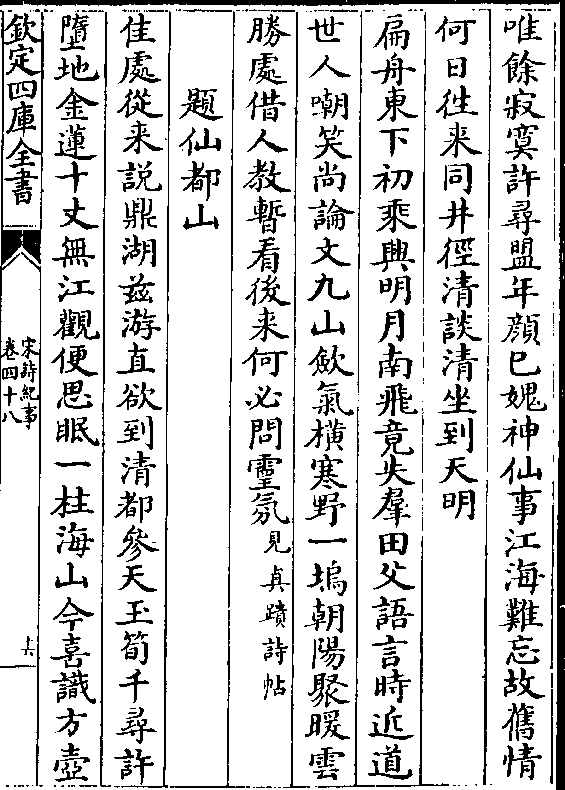 唯餘寂寞許尋盟年顔已媿神仙事江海難忘故舊情
何日徃来同井徑清談清坐到天明
扁舟東下初乘興明月南飛竟失羣田父語言時近道
世人嘲笑尚論文九山歛氣横寒野一塢朝陽聚暖雲
勝處借人教暫看後来何必問靈氛見真蹟詩帖
題仙都山
佳處從来説鼎湖兹游直欲到清都參天玉筍千尋許
墮地金蓮十丈無江觀便思眠一柱海山今喜識方壺
欽定四庫全書
宋詩紀事
卷四十八
十六